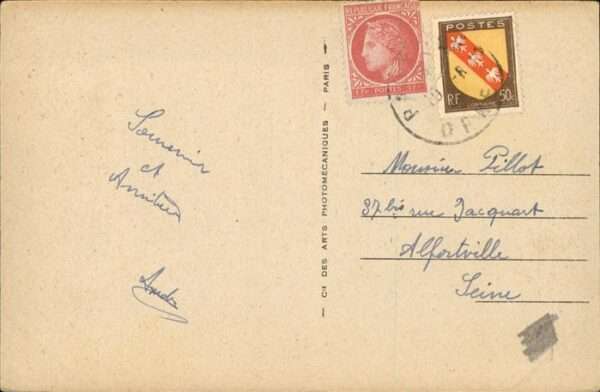 Souvenir
et
Amitiés
— Cie DES ARTS PHOTOMÉCANIQUES — PARIS —
RÉPUBLIQUE FRANÇAISE
1F. POSTES 1F.
POSTES
RF LORRAINE 50c
Monsieur Pillot
37 bis rue Jacquart
Alfortville
Seine